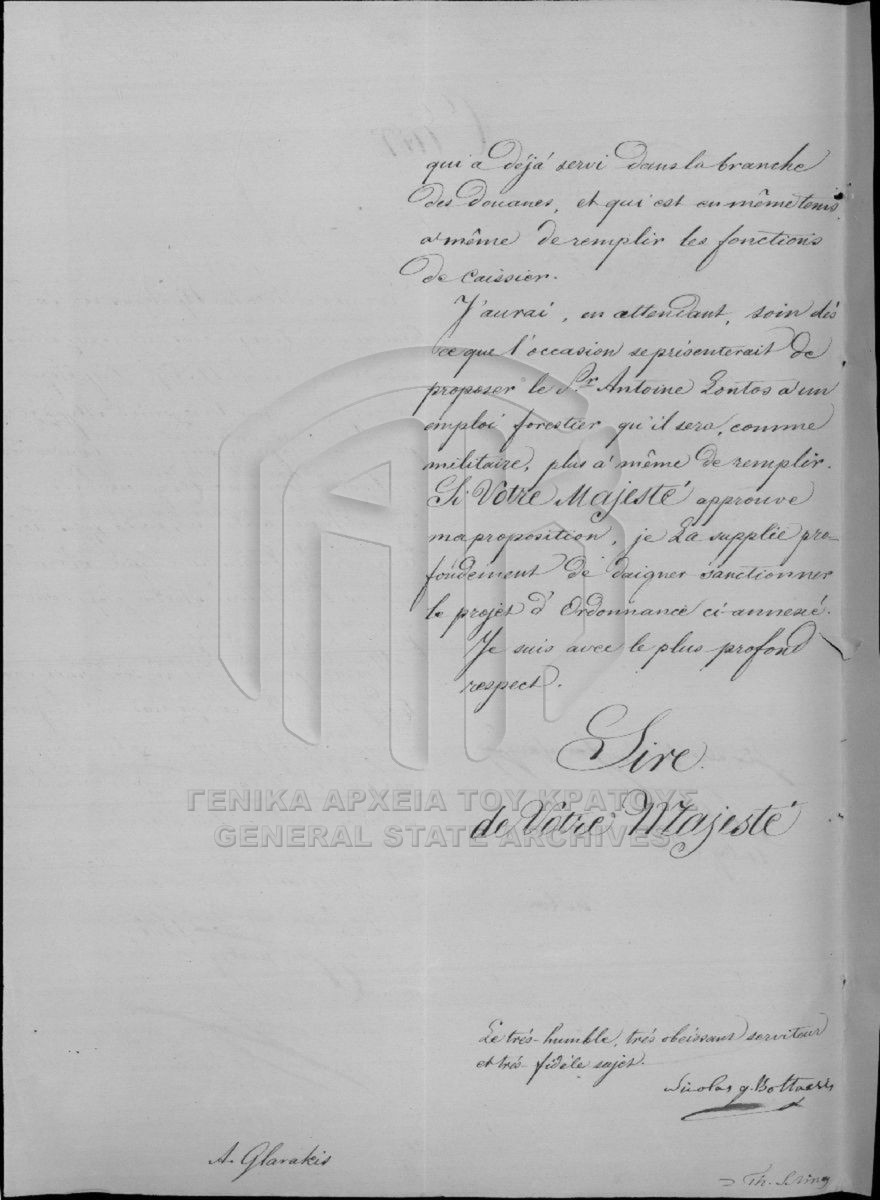 qui a déjà servi dans la branche
des douanes, et qui est en même tems
a même de remplir les fonctions
de Caissier.
J'aurai, en attendant, soin dès
ce que l'occasion se présenterait de
proposer le Sr. Antoine Lontos a un
emploi forestier qu'il sera, comme
militaire, plus a même de remplir.
Si Votre Majesté approuve
ma proposition, je La supplie pro-
fondement de daigner sanctionner
le projet d'Ordonnance ci-annexé.
Je suis avec le plus profond
respect.
Sire
de Votre Majesté
ΓΕΝΙΚΑ ΑΡΧΕΙΑ ΤΟΥ ΚΡΑΤΟΥΣ
GENERAL STATE ARCHIVES
Le trés-humble, trés obéissant serviteur
et trés-fidéle sujet.
Nicolas g. Bottasis
A. Glarakis
Th.